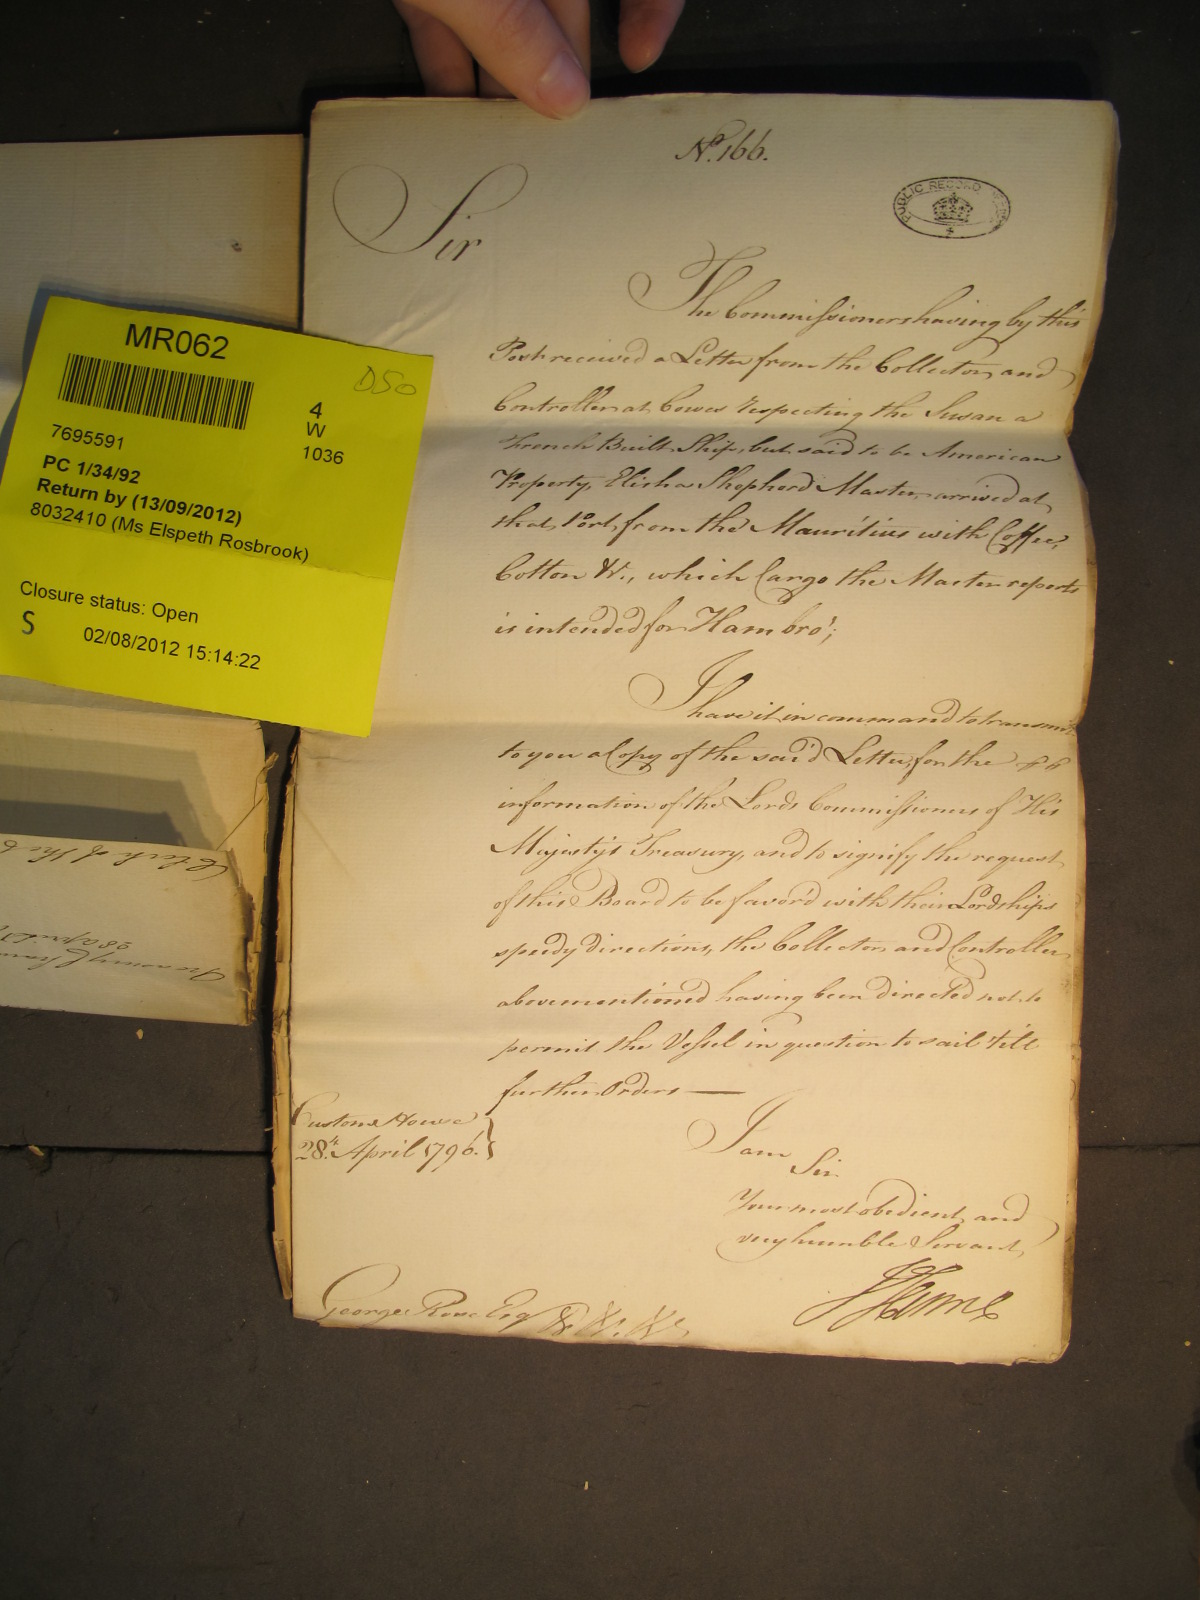 No. 166.
PUBLIC RECORD
Sir
The Commissioners having by this
Post received a Letter from the Collector and
Controller at Cowes respecting the Susan a
French Built Ship, but said to be American
Property, Elisha Shepherd Master, arrived at
that Port, from the Mauritius with Coffee,
Cotton &c., which Cargo the Master reports
is intended for Hambro';
I have it in command to transmit
to you a Copy of the said Letter, for the
information of the Lords Commissioners of His
Majesty's Treasury, and to signify the request
of this Board to be favor'd with their Lordships
speedy directions, the Collector and Controller
abovementioned having been directed not to
permit the Vessel in question to sail 'till
further Orders —
Custom House
28th. April 1796.
I am
Sir
Your most obedient and
very humble Servant,
J Hume
George Rose Esqr &c. &c. &c.
MR062
D50
4
W
1036
7695591
PC 1/34/92
Return by (13/09/2012)
8032410 (Ms Elspeth Rosbrook)
Closure status: Open
S
02/08/2012 15:14:22
Clerk of the C
28 April
Treasury Cham